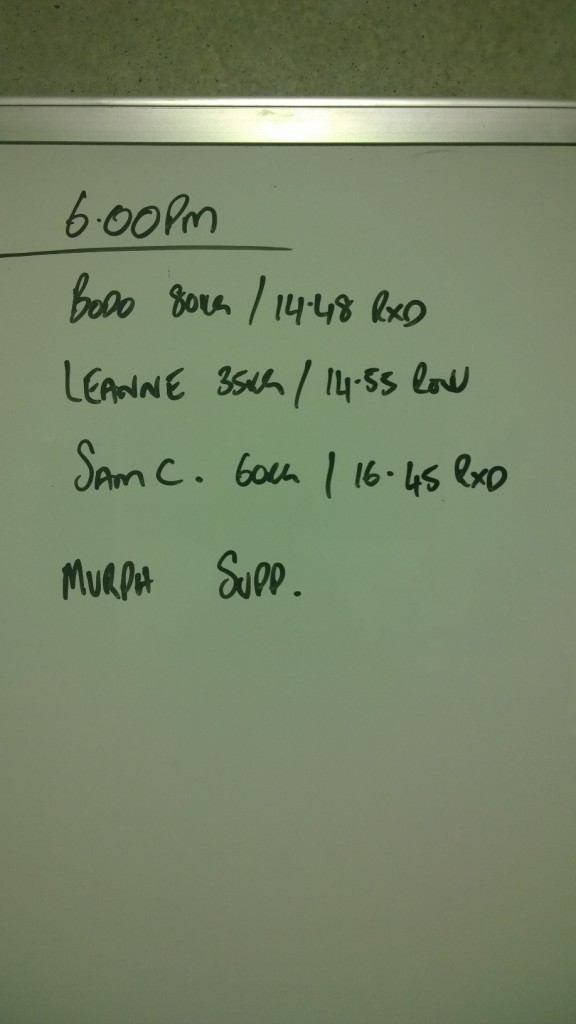 6.00PM
BODO 80KG / 14.48 RXD
LEANNE 35KG / 14.55 ROW
SAM C. 60KG / 16.45 RXD
MURPH SUPP.